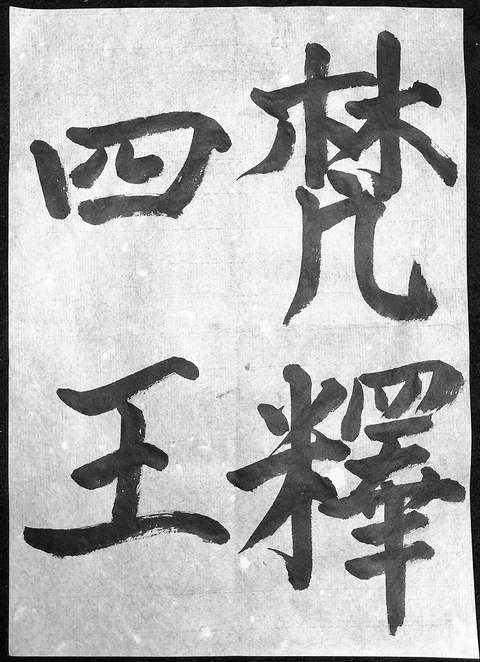 梵釋
四王